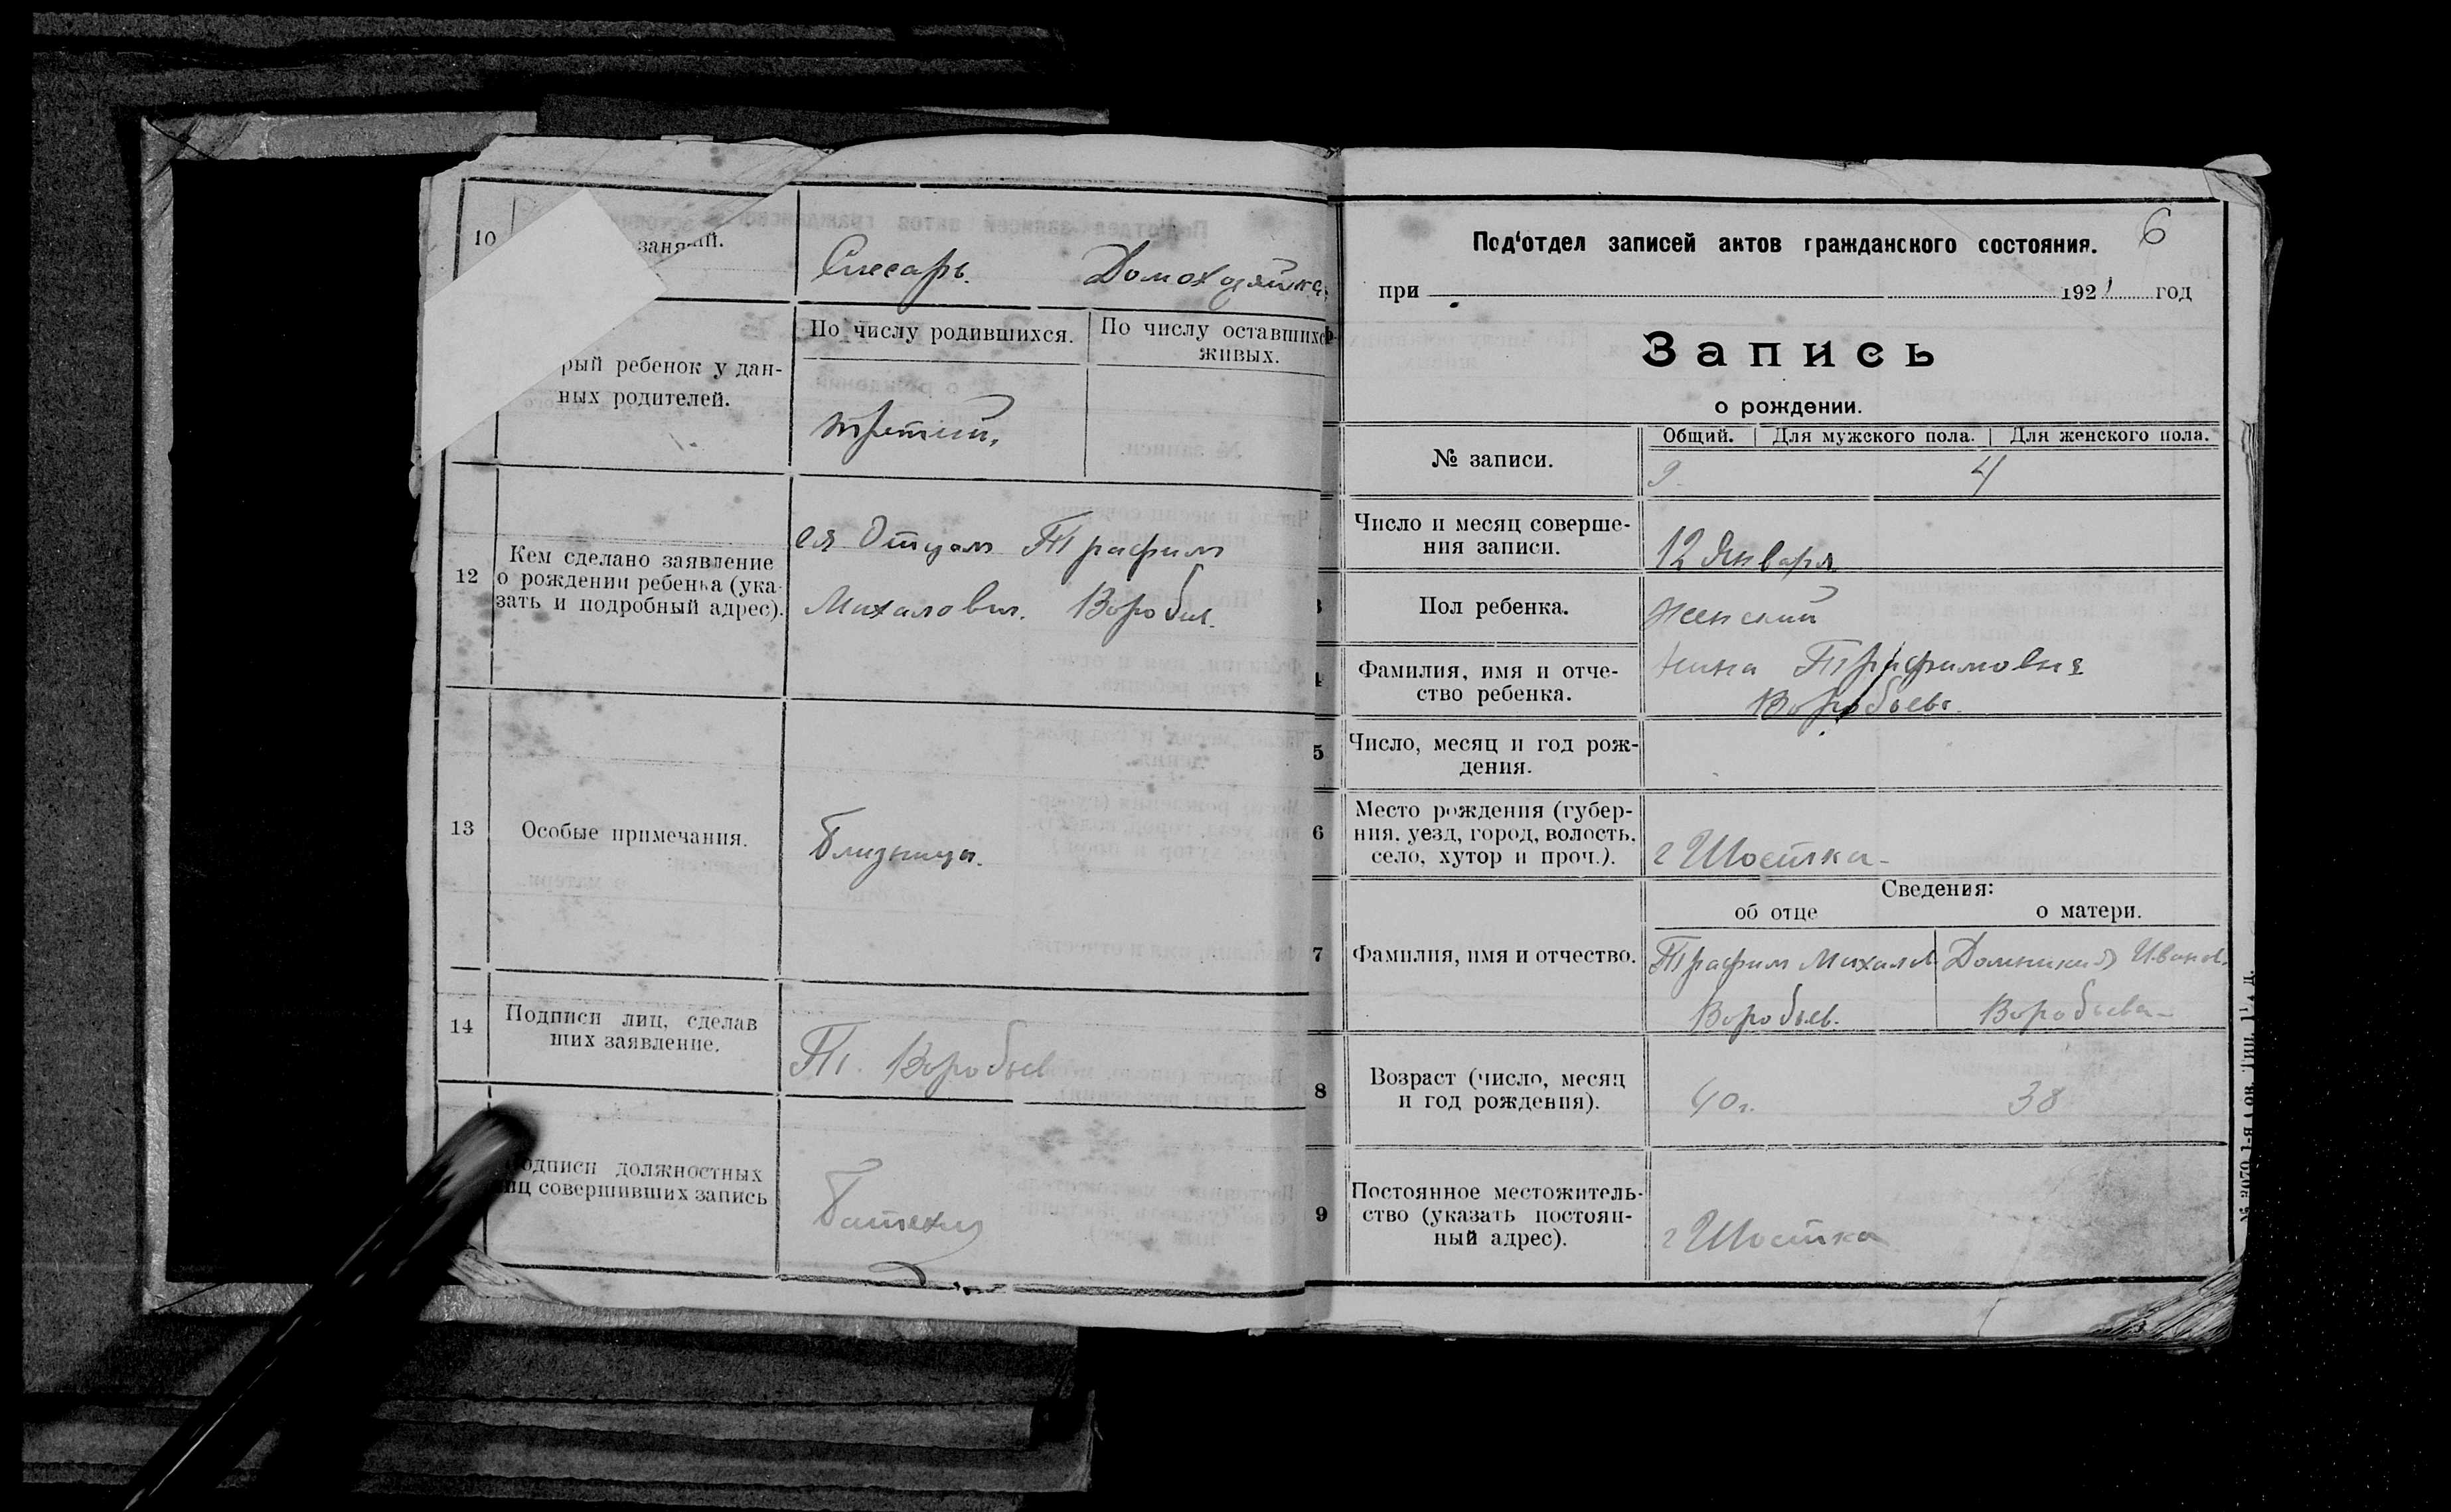 10
занятий.
Слесарь. Домохозяйка.
По числу родившихся. По числу оставшихся
живых.
рый ребенок у дан-
ных родителей.
третий,
12
Кем сделано заявление
о рождении ребенка (ука-
зать и подробный адрес).
ея Отцом Трафим
Михалович. Воробъл.
13
Особые примечания.
Близнецы.
14
Подписи лиц, сделав
ших заявление.
Т. Воробьев
одписи должностных
иц совершивших запись
6
Под‘отдел записей актов гражданского состояния.
при 1921 год
Запись
о рождении.
№ записи.
Общий. Для мужского пола. Для женского пола.
9. 4
Число и месяц соверше-
ния записи.
12 Января
3
Пол ребенка.
женский
4
Фамилия, имя и отче-
ство ребенка.
Нина Трафимовна
Воробьева.
5
Число, месяц и год рож-
дения.
6
Место рождения (губер-
ния, уезд, город, волость,
село, хутор и проч.).
г Шостка
Сведения:
об отце о матери.
7
Фамилия, имя и отчество.
Трафим Михалов Домникия Иванов.
Воробьев. Воробьева
8
Возраст (число, месяц
и год рождения).
40 г. 38
9
Постоянное местожитель-
ство (указать постоян-
ный адрес).
г Шостка